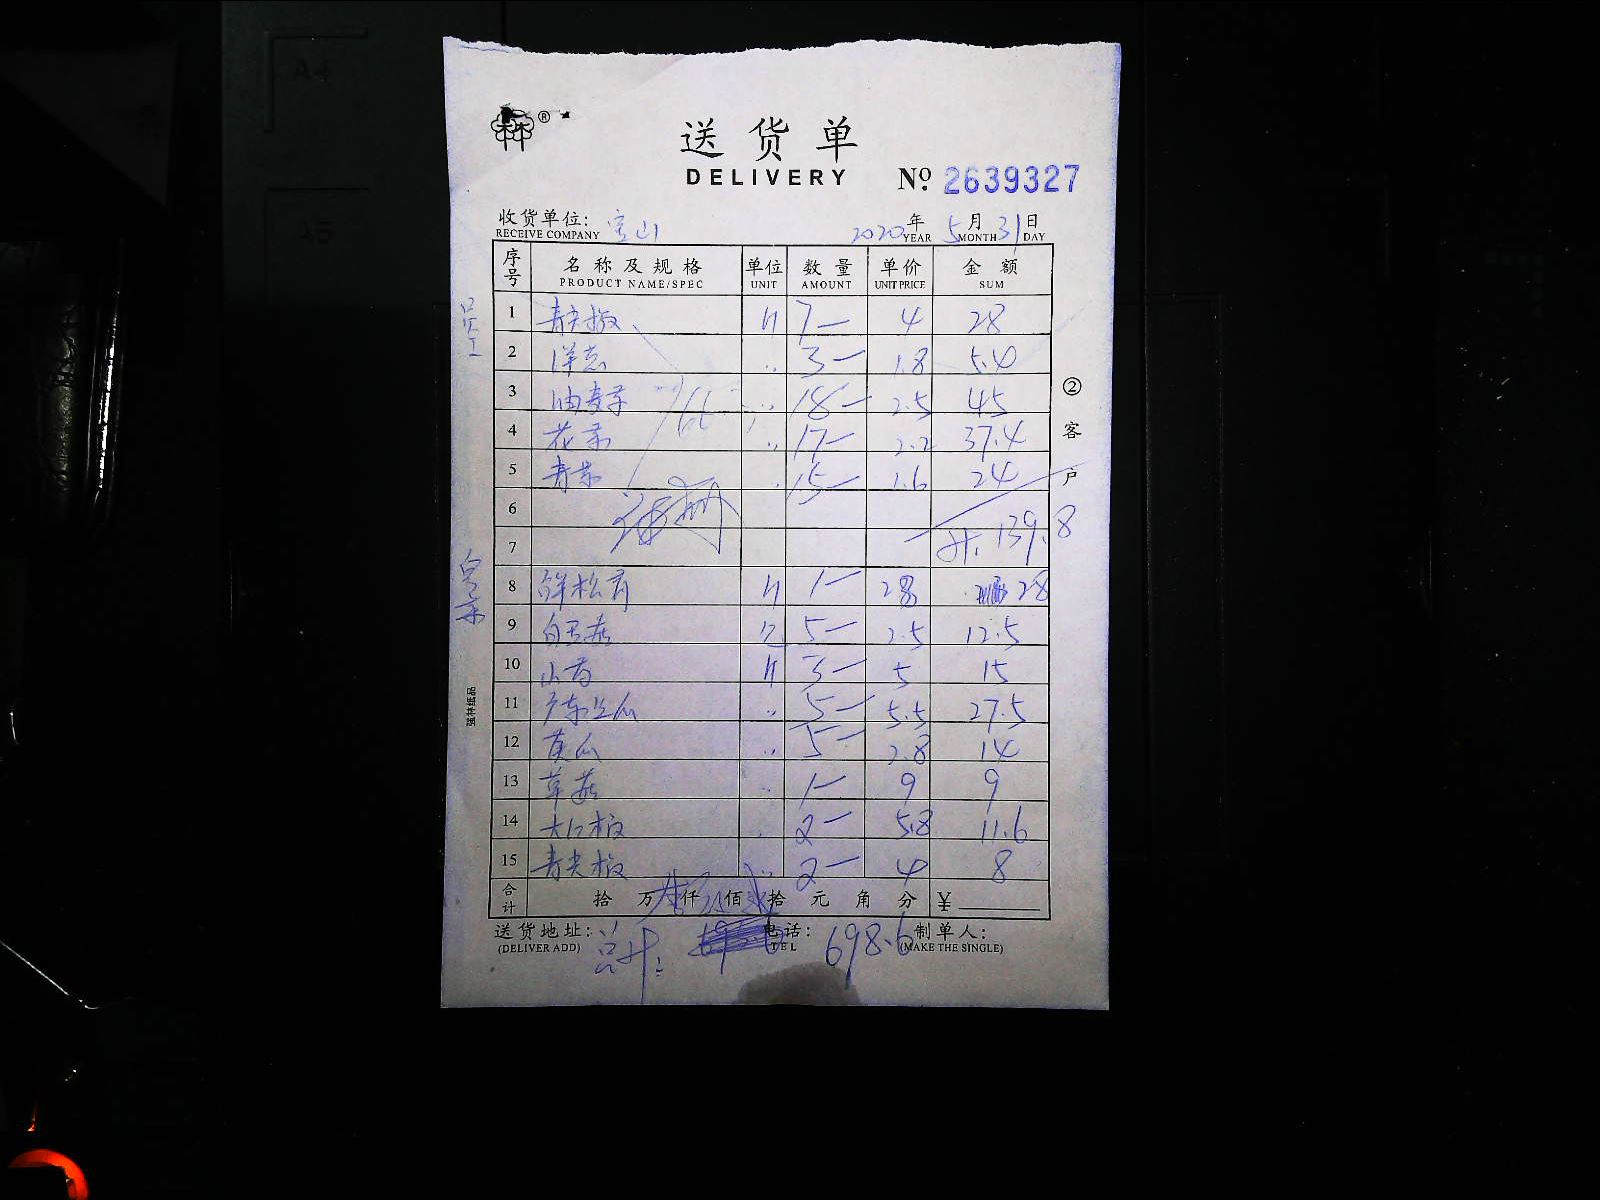 ®
送货单
DELIVERY
No. 2639327
收货单位: 宝山 2020年 5月 31日
RECEIVE COMPANY YEAR MONTH DAY
序号 名称及规格 单位 数量 单价 金额
PRODUCT NAME/SPEC UNIT AMOUNT UNIT PRICE SUM
员工
1 青尖椒 斤 7— 4 28
2 洋葱 〃 3— 1.8 5.4
3 油麦菜 〃 18— 2.5 45
4 花菜 〃 17— 2.2 37.4
5 青菜 〃 15— 1.6 24
6
7 计. 139.8
8 鲜松茸 斤 1— 28 28
9 白玉菇 包 5— 2.5 12.5
10 山药 斤 3— 5 15
11 广东丝瓜 〃 5— 5.5 27.5
12 黄瓜 〃 5— 2.8 14
13 草菇 〃 1— 9 9
14 大红椒 〃 2— 5.8 11.6
15 青尖椒 〃 2— 4 8
合计 拾 万 仟 佰 拾 元 角 分 ¥
送货地址: 电话: 制单人:
(DELIVER ADD) TEL (MAKE THE SINGLE)
总计: 698.6
②客户
强林纸品